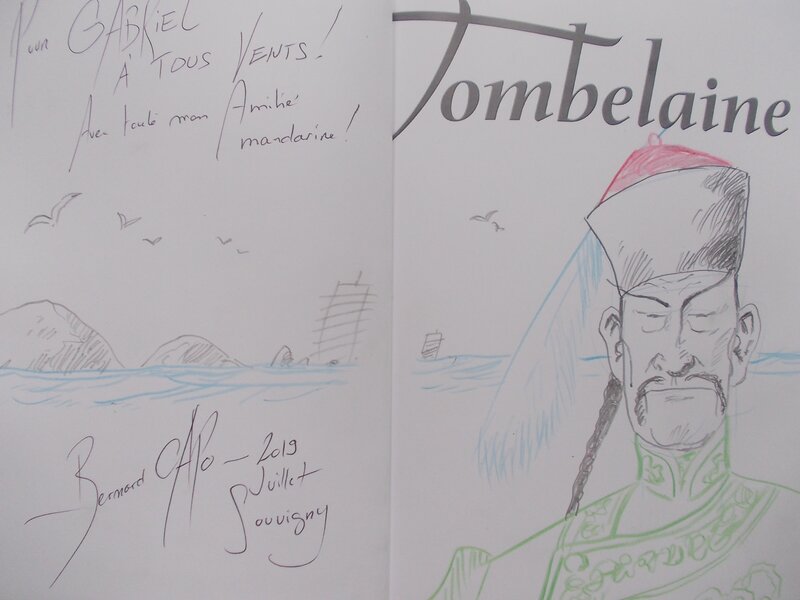 Pour GABRIEL
À TOUS VENTS!
Avec toute mon Amitié
mandarine!
Bernard CAPO - 2019
Juillet
Souvigny
Tombelaine